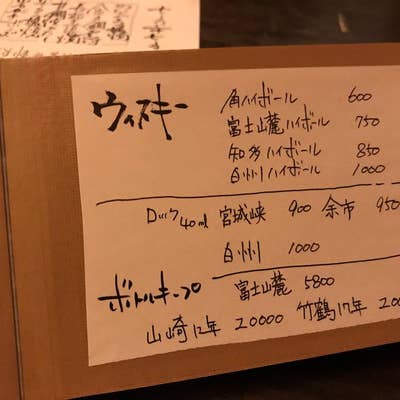 ウィスキー
角ハイボール 600
富士山麓ハイボール 750
知多ハイボール 850
白州ハイボール 1000
40ml 宮城峡 900 余市 950
白州 1000
ボトルキープ
富士山麓 5800
山崎12年 20000 竹鶴17年